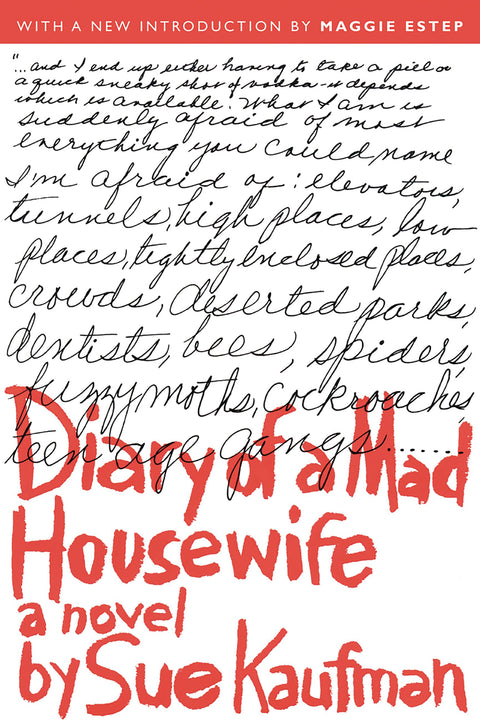 WITH A NEW INTRODUCTION BY MAGGIE ESTEP
"...and I end up either having to take a pill or
a quick sneaky shot of vodka - it depends
which is available. What I am is
suddenly afraid of most
everything you could name
I'm afraid of: elevators,
tunnels, high places, low
places, tightly enclosed places,
crowds, deserted parks,
dentists, bees, spiders,
fuzzy moths, cockroaches,
teen age gangs.......
Diary of a Mad
Housewife
a novel
by Sue Kaufman